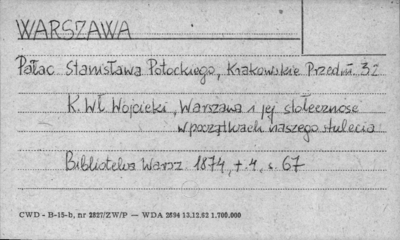 WARSZAWA
Pałac Stanisława Potockiego, Krakowskie Przedm. 32
K. Wł. Wojcicki, Warszawa i jej stołeczność
w początkach naszego stulecia
Biblioteka Warsz. 1874, t. 4, s. 67
CWD - B-15-b, nr 2827/ZW/P — WDA 2694 12.12.62 1.700.000